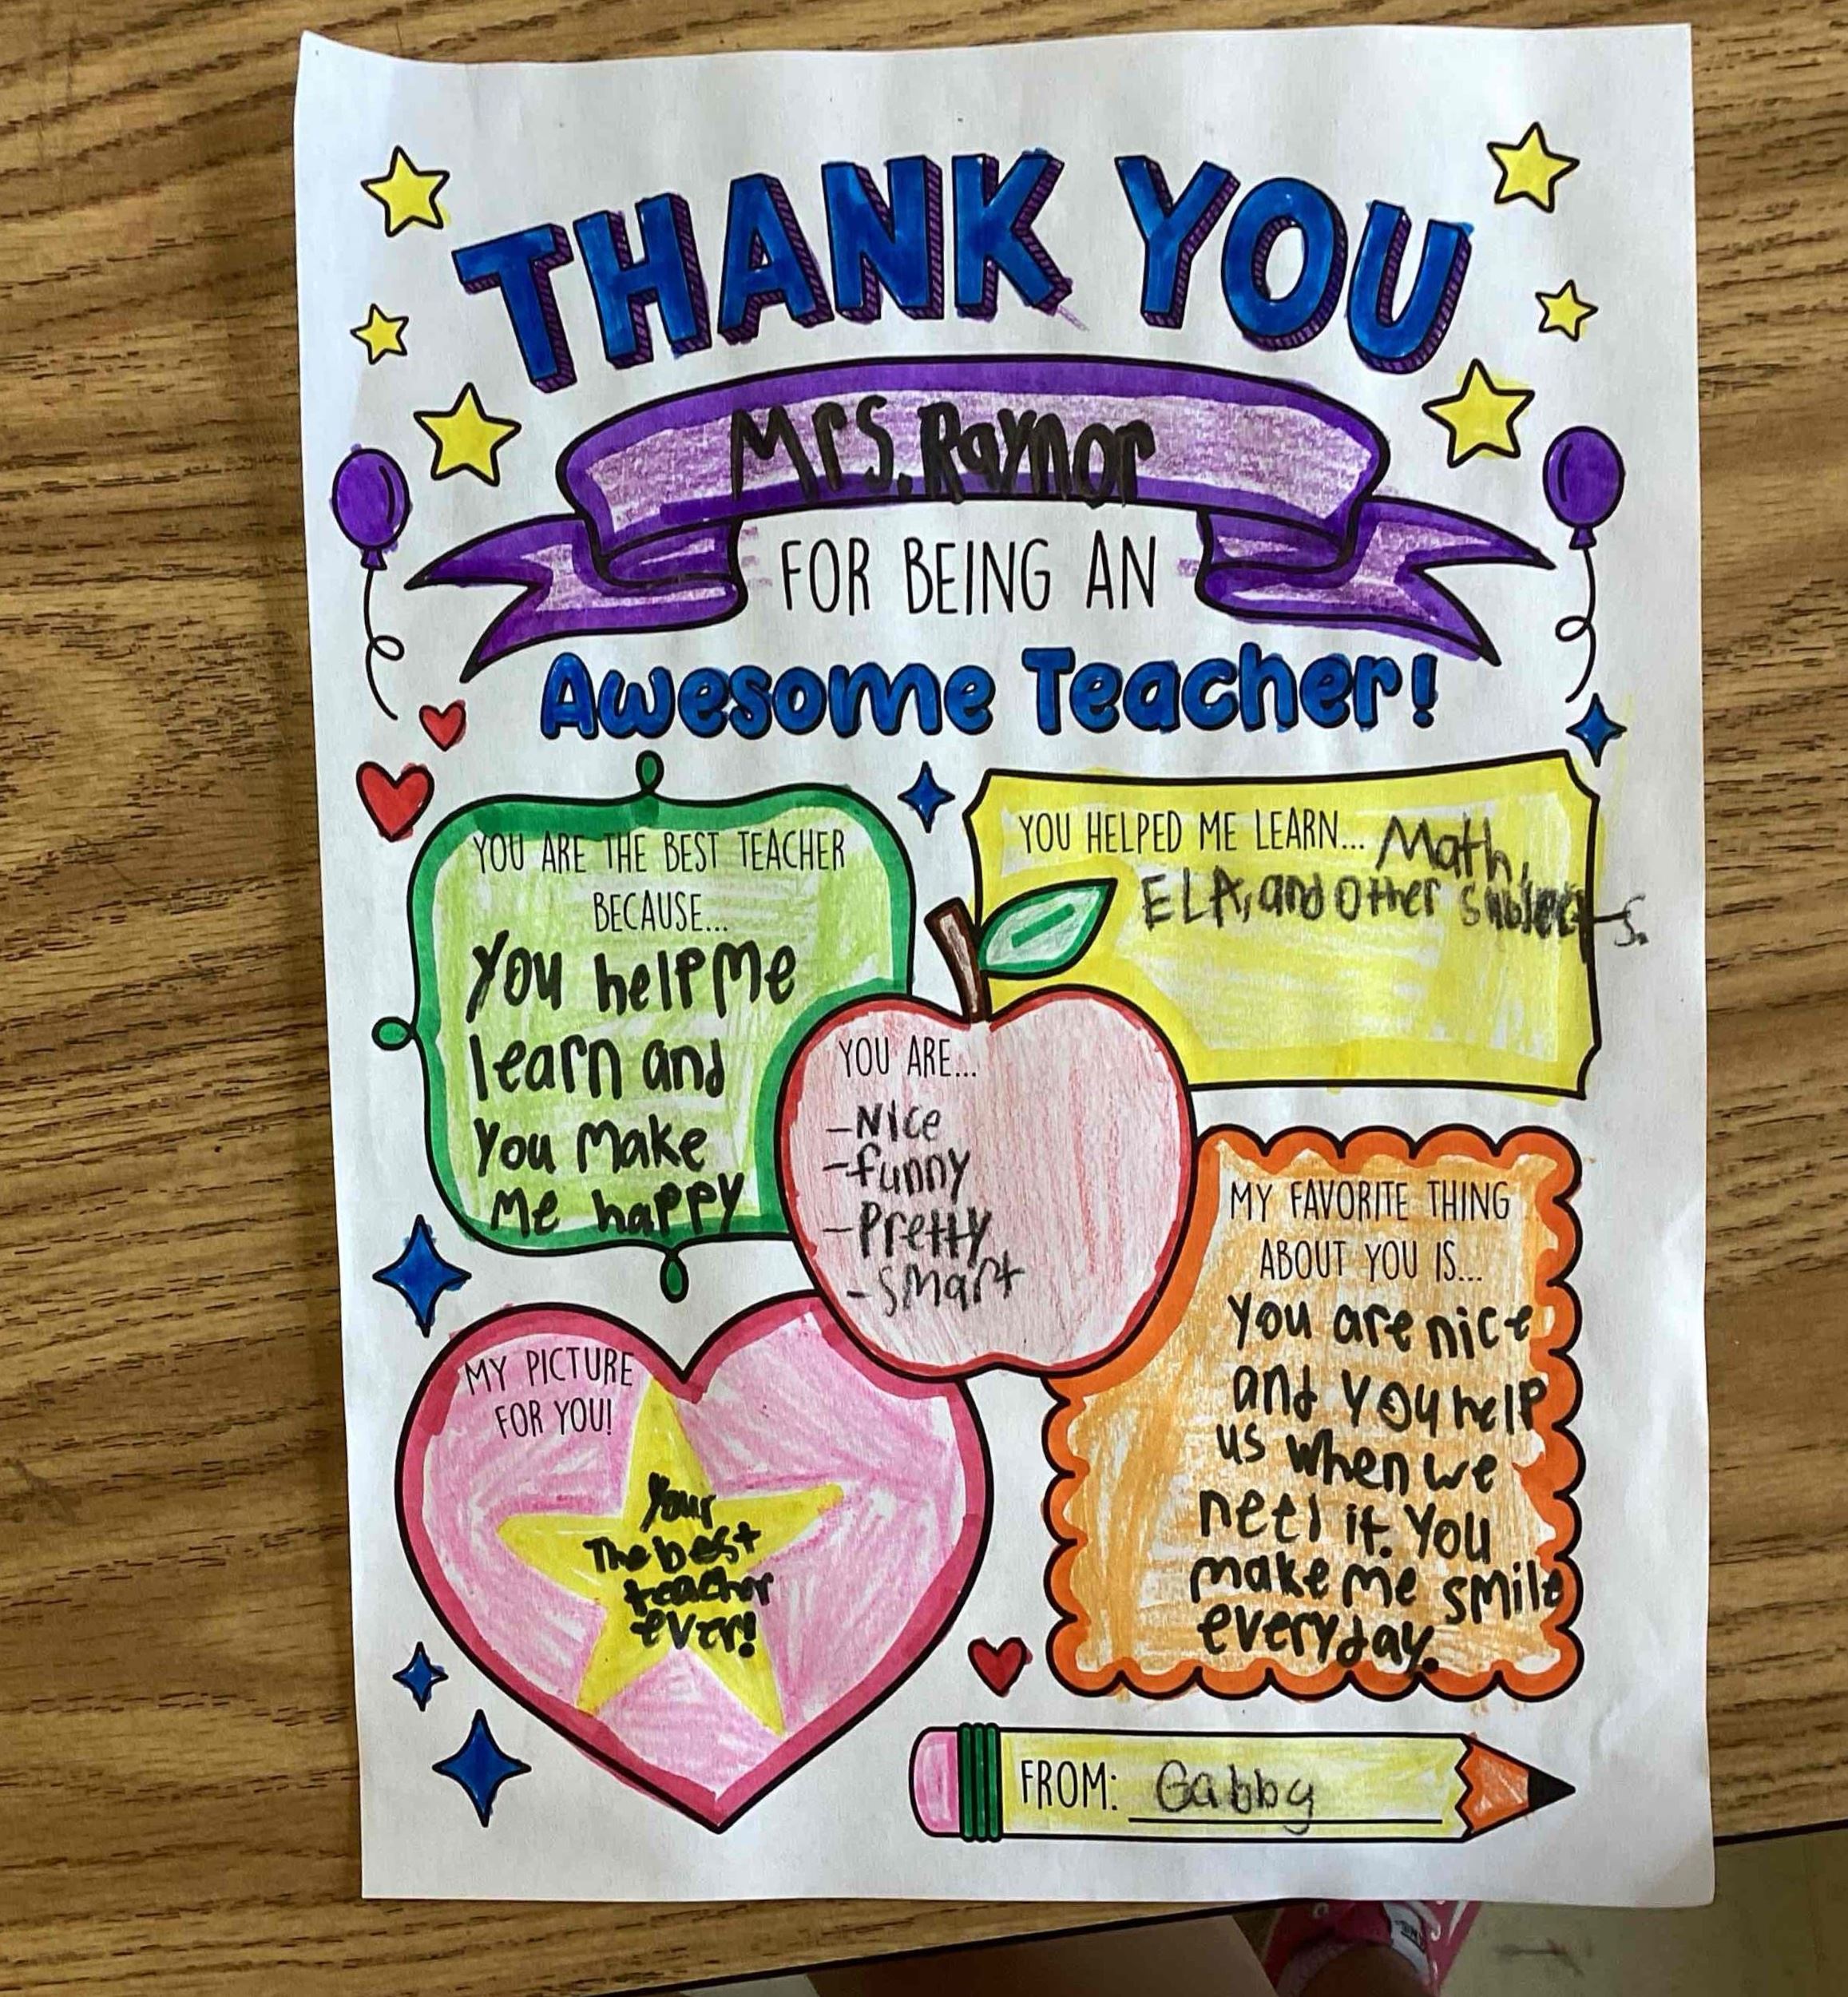 THANK YOU
Mrs. Raynor
FOR BEING AN
Awesome Teacher!
YOU ARE THE BEST TEACHER
BECAUSE...
You help me
learn and
You Make
Me happy
YOU HELPED ME LEARN... Math,
ELA, and other subjects.
YOU ARE...
-Nice
-funny
-Pretty
-smart
MY FAVORITE THING
ABOUT YOU IS...
You are nice
and you help
us when we
need it. You
make me smile
everyday.
MY PICTURE
FOR YOU!
Your
The best
teacher
ever!
FROM: Gabby